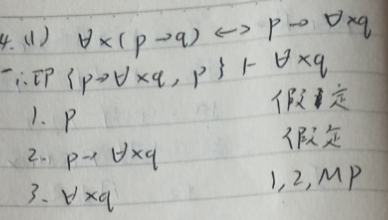 4. (1) ∀x(p→q) ↔ p→∀xq
证 {p→∀xq, p} ⊢ ∀xq
1. p 假定
2. p→∀xq 假定
3. ∀xq 1, 2, MP